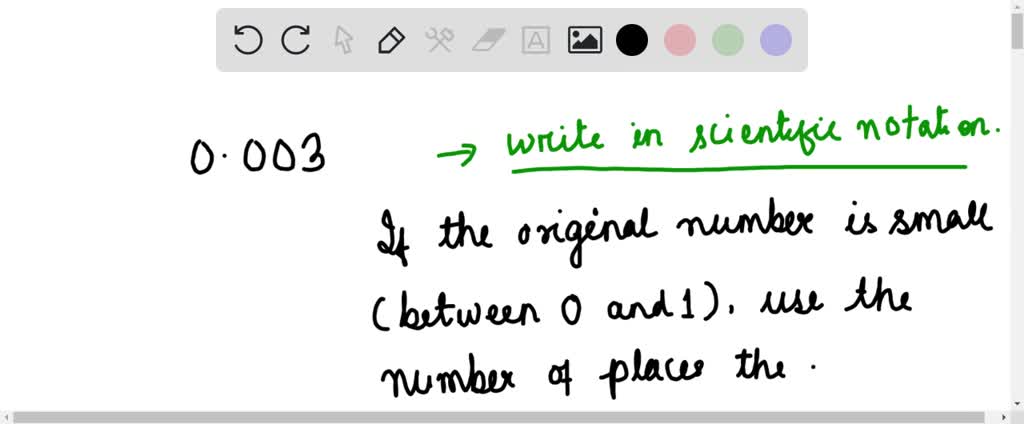 A
0.003 → write in scientific notation.
If the original number is small
(between 0 and 1), use the
number of places the .